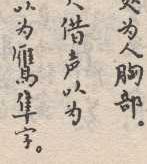 为人胸部。
人借声以为
以为鴈隼字。